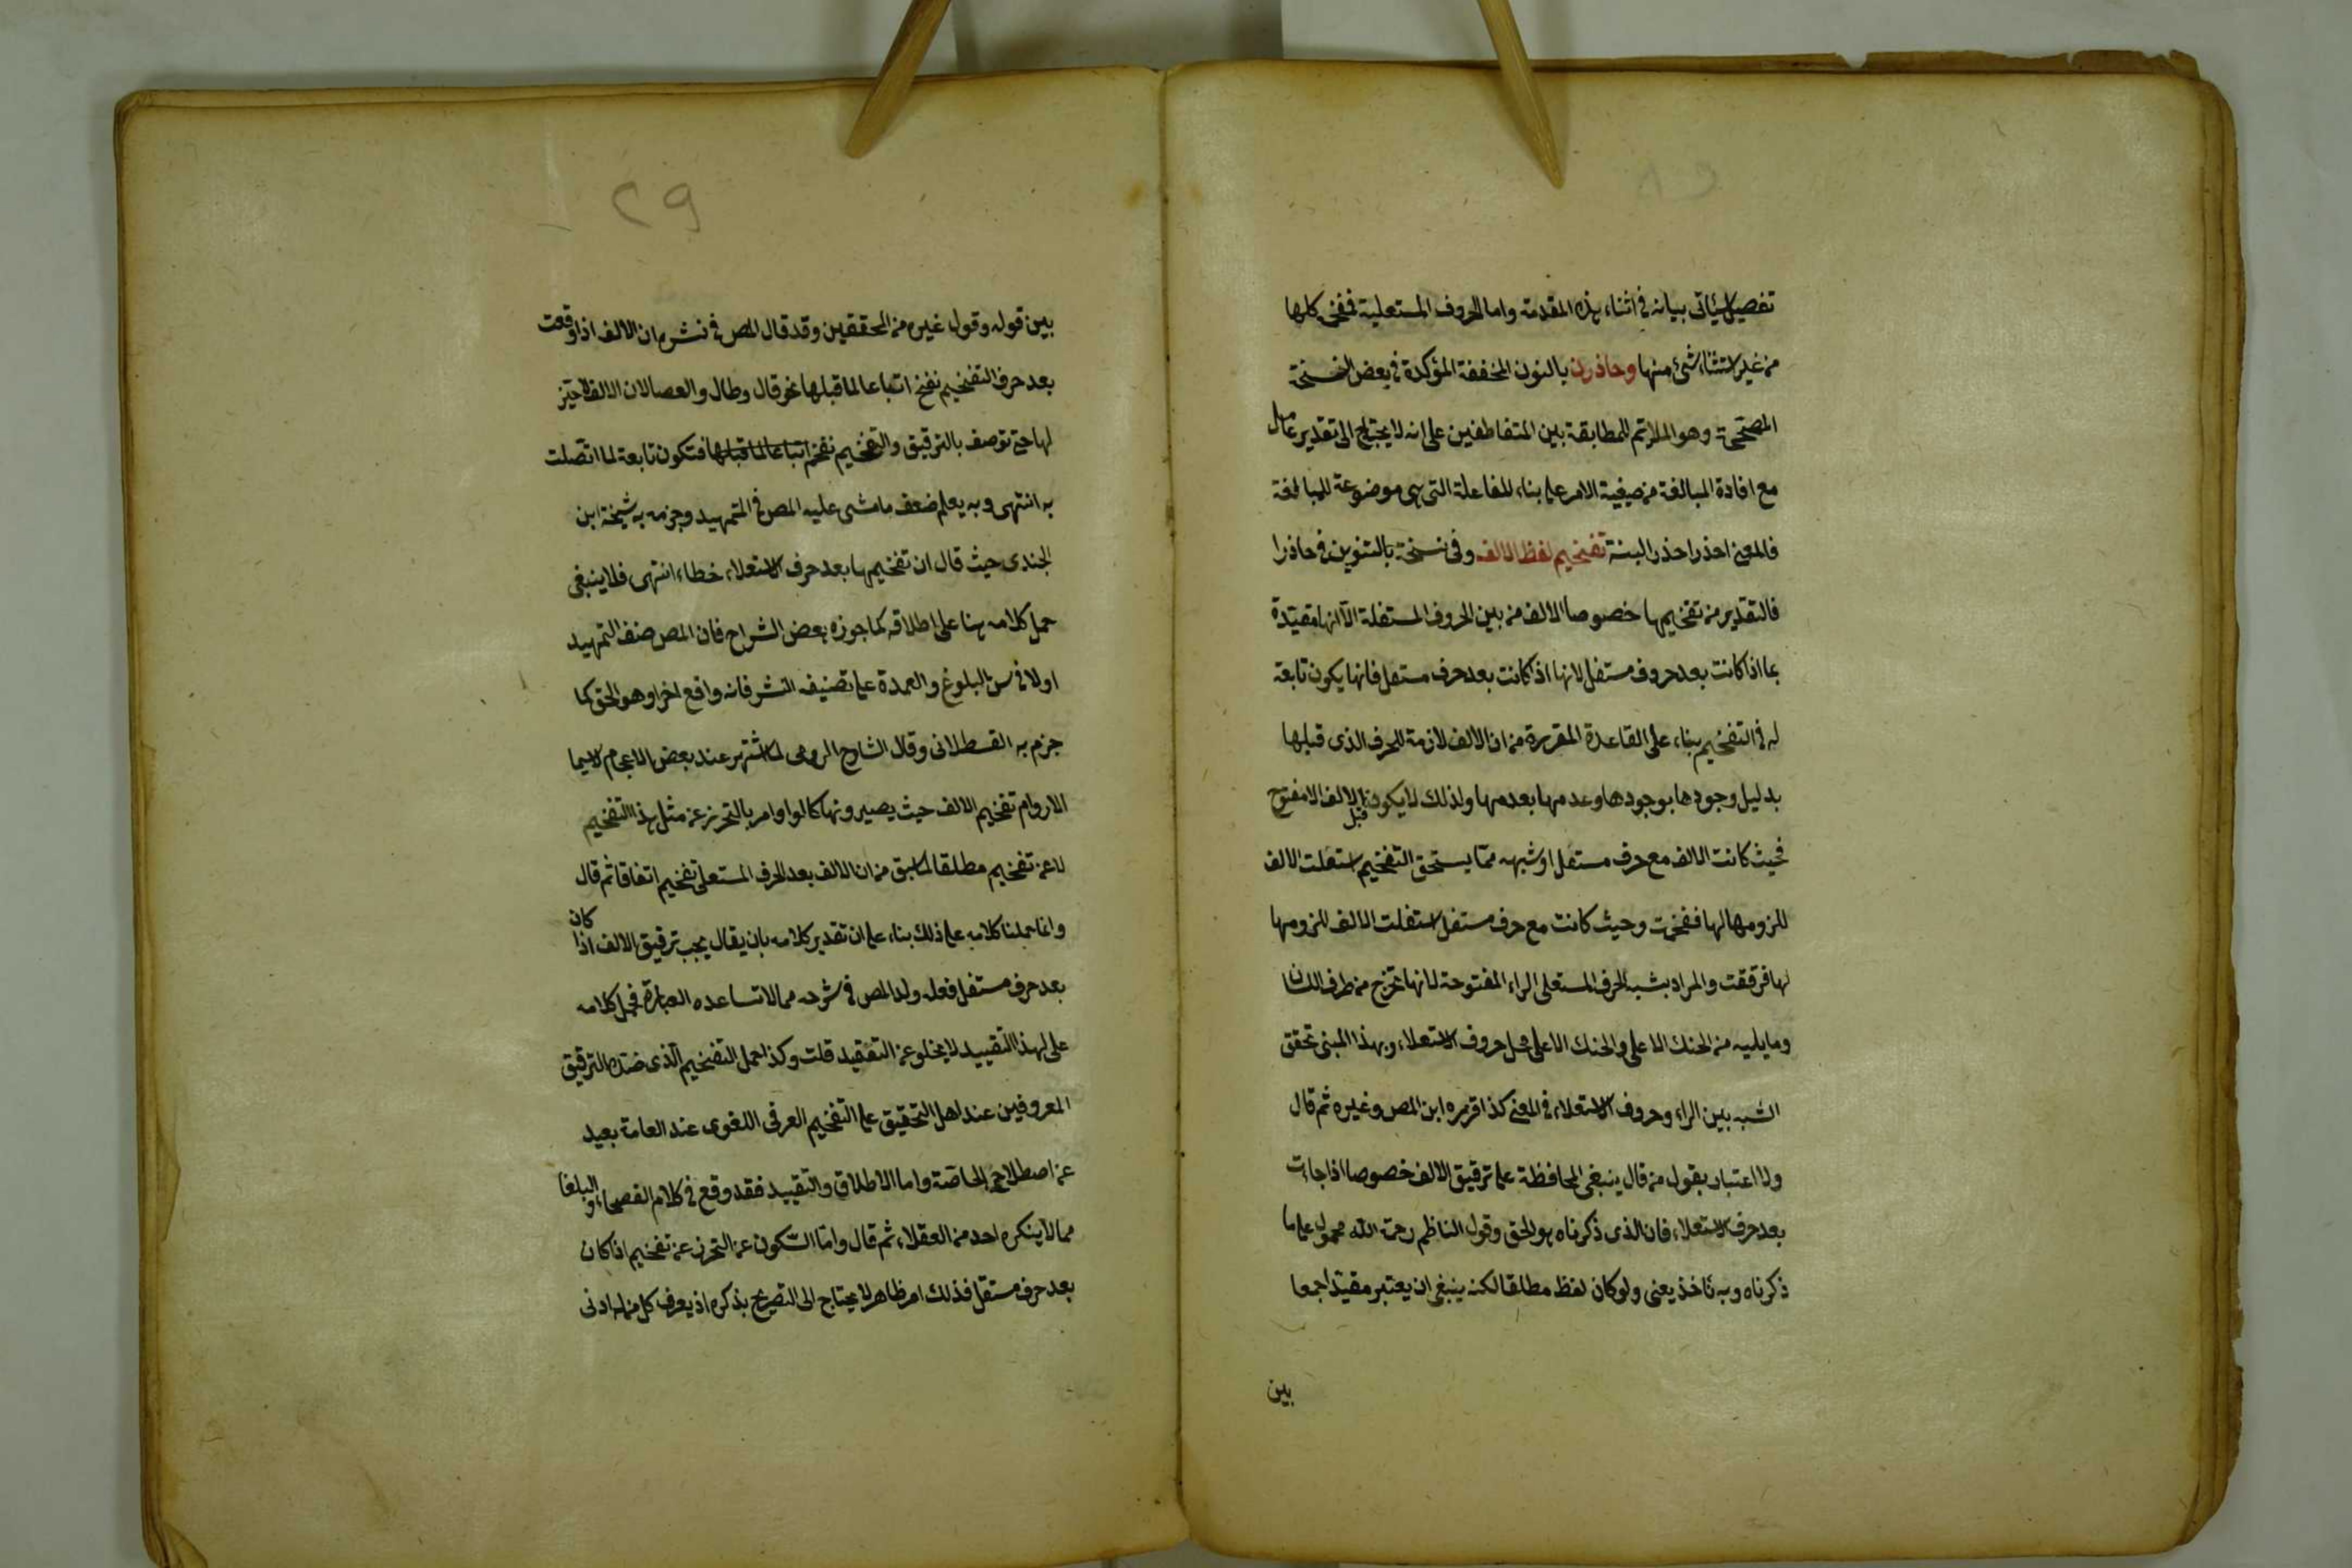 تفصيل سيأتى بيانه فى اثناء هذه المقدمة واما الحروف المستعلية فمفخم كلها
من غير استثناء شئ منها وحاذرن بالنون المخففة المؤكدة فى بعض النسخة
المصححة وهو الملايم للمطابقة بين المتعاطفين على انه لا يحتاج الى تقدير عامل
مع افادة المبالغة من صيغية الامر على بناء المفاعلة التى هى موضوعة للمبالغة
فالمعنى احذر احذر البتة تفخيم لفظ الالف وفى نسخة بالتنوين فى حاذرا
فالتقدير من تفخيمها خصوصا الالف من بين الحروف المستفلة الا انها مقيدة
بما اذا كانت بعد حروف مستفل لانها اذا كانت بعد حرف مستعل فانها يكون تابعة
له فى التفخيم بناء على القاعدة المقررة من ان الالف لازمة للحرف الذى قبلها
بدليل وجودها بوجودها وعدمها بعدمها ولذلك لا يكون قبل الالف الا مفتوح
فحيث كانت الالف مع حرف مستعل او شبهه مما يستحق التفخيم استعلت الالف
للزومها لها ففخمت وحيث كانت مع حرف مستفل استفلت الالف للزومها
لها فرققت والمراد بشبه الحرف المستعلى الراء المفتوحة لانها تخرج من طرف اللسان
وما يليه من الحنك الاعلى والحنك الاعلى محل حروف الاستعلاء وبهذا المبنى تحقق
الشبه بين الراء وحروف الاستعلاء فى المعنى كذا قرره ابن المص وغيره ثم قال
ولا اعتبار بقول من قال ينبغى المحافظة على ترقيق الالف خصوصا اذا جاءت
بعد حرف الاستعلاء فان الذى ذكرناه هو الحق وقول الناظم رحمة الله محمول على ما
ذكرناه وبه ناخذ يعنى ولو كان لفظ مطلقا لكنه ينبغى ان يعتبر مقيدا جمعا
بين
29
بين قوله وقول غيره من المحققين وقد قال المص فى نشره ان الالف اذا وقعت
بعد حرف التفخيم تفخم اتباعا لما قبلها نحو قال وطال والعصا لان الالف لا حيز
لها حتى توصف بالترقيق والتفخيم تفخم اتباعا لما قبلها فتكون تابعة لما اتصلت
به انتهى وبه يعلم ضعف ما مشى عليه المص فى التمهيد وجزمه به شيخه ابن
الجندى حيث قال ان تفخيمها بعد حرف الاستعلاء خطاء انتهى فلا ينبغى
حمل كلامه هنا على اطلاقه كما جوزه بعض الشراح فان المص صنف التمهيد
اولا فى سن البلوغ والعمدة على تصنيف النشر فانه واقع اخرا وهو الحق كما
جزم به القسطلانى وقال الشارح الرومى لما اشتهر عند بعض الاعجام لاسيما
الاروام تفخيم الالف حيث يصيرونها كالواو امر بالتحرز عن مثل هذا التفخيم
لا عن تفخيم مطلقا لما سبق من ان الالف بعد الحرف المستعلى تفخيم اتفاقا ثم قال
وانما حملنا كلامه على ذلك بناء على ان تقدير كلامه بان يقال يجب ترقيق الالف اذا كان
بعد حرف مستفل فعله ولد المص فى شرحه مما لا تساعده العبارة فحمل كلامه
على لهذا التقييد لا يخلو عن التعقيد قلت وكذا حمل التفخيم الذى ضده الترقيق
المعروفين عند اهل التحقيق على التفخيم العرفى اللغوى عند العامة بعيد
عن اصطلاح الخاصة واما الاطلاق والتقييد فقد وقع فى كلام الفصحاء والبلغا
مما لا ينكره احد من العقلاء ثم قال واما السكون عن التحرز عن تفخيم اذا كان
بعد حرف مستعل فذلك امر ظاهر لا يحتاج الى التصريح بذكره اذ يعرف كل من له ادنى